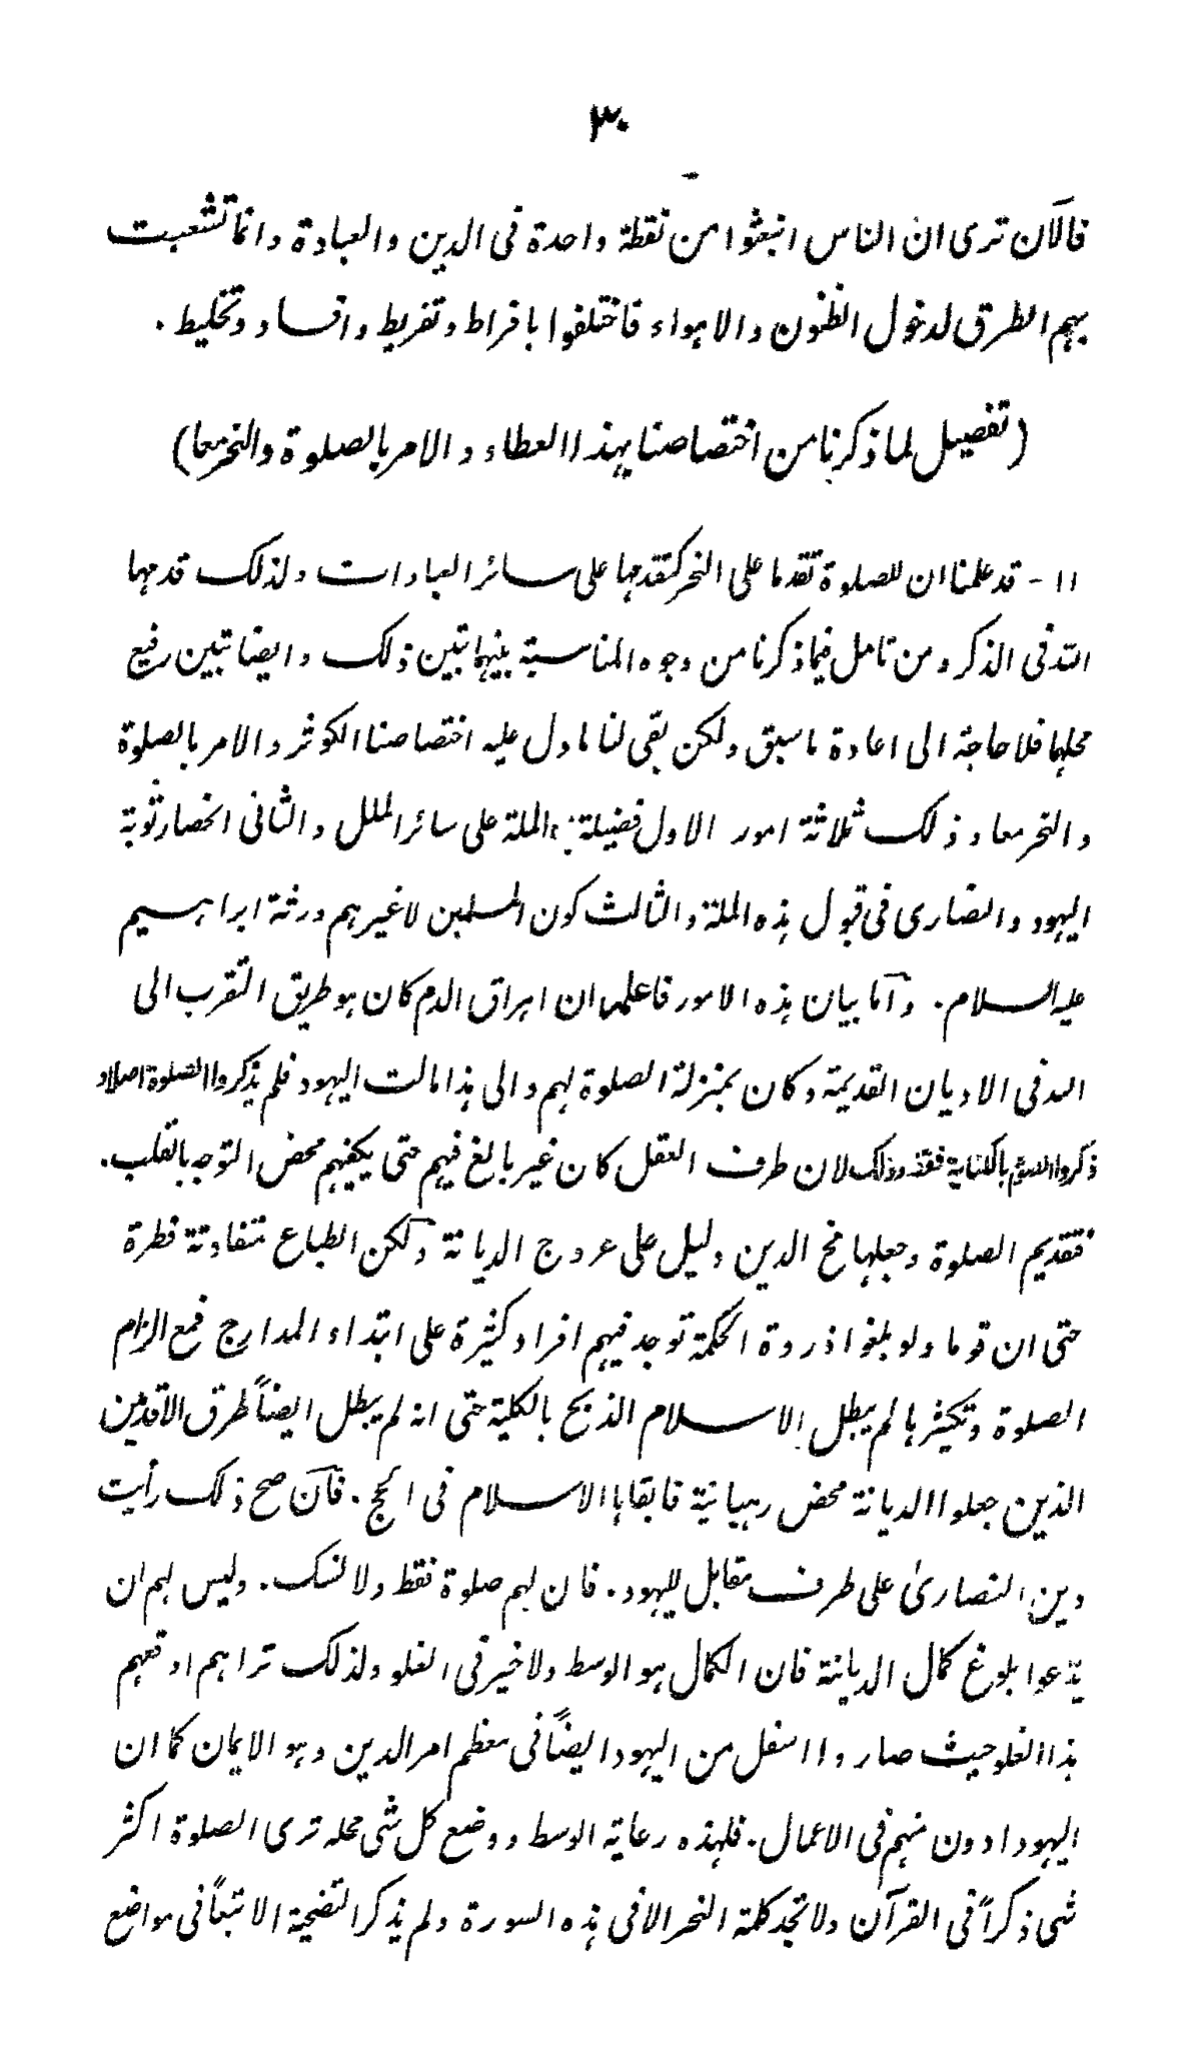 ٣٠
فالآن ترى ان الناس انبعثوا من نقطة واحدة فى الدين والعبادة وانما تشعبت
بهم الطرق لدخول الظنون والاهواء فاختلفوا بافراط وتفريط وافساد وتخليط.
(تفصيل لما ذكرنا من اختصاصنا بهذا العطاء والامر بالصلوة والنحر معا)
١١- قد علمنا ان للصلوة تقدما على النحر كتقدمها على سائر العبادات ولذلك قدمها
الله فى الذكر ومن تامل فيما ذكرنا من وجوه المناسبة بينهما تبين ذلك وايضا تبين رفيع
محلها فلا حاجة الى اعادة ما سبق ولكن بقى لنا ما دل عليه اختصاصنا الكوثر والامر بالصلوة
والنحر معا وذلك ثلاثة امور الاول فضيلة هذه الملة على سائر الملل والثانى انحصار توبة
اليهود والنصارى فى قبول هذه الملة والثالث كون المسلمين لا غيرهم ورثة ابراهيم
عليه السلام. وآما بيان هذه الامور فاعلم ان اهراق الدم كان هو طريق التقرب الى
الله فى الاديان القديمة وكان بمنزلة الصلوة لهم والى هذا مالت اليهود فلم يذكروا الصلوة اصلا و
ذكروا بالكناية فقط وذلك لان طرف العقل كان غير بالغ فيهم حتى يكفيهم محض التوجه بالقلب.
فتقديم الصلوة وجعلها مخ الدين دليل على عروج الديانة ولكن الطباع متفاوتة فطرة
حتى ان قوما ولو بلغوا ذروة الحكمة توجد فيهم افراد كثيرة على ابتداء المدارج فمع الزام
الصلوة وتكثيرها لم يبطل الاسلام الذبح بالكلية حتى انه لم يبطل ايضاً طرق الاقدمين
الذين جعلوا الديانة محض رهبانية فابقاها الاسلام فى الحج. فآن صح ذلك رأيت
دين النصارىٰ على طرف مقابل لليهود. فان لهم صلوة فقط ولا نسك. وليس لهم ان
يدّعوا بلوغ كمال الديانة فان الكمال هو الوسط ولا خير فى الغلو ولذلك تراهم اوقعهم
هذا الغلو حيث صاروا اسفل من اليهود ايضاً فى معظم امر الدين وهو الايمان كما ان
اليهود ادون منهم فى الاعمال. فلهذه رعاية الوسط ووضع كل شى محله ترى الصلوة اكثر
شى ذكراً فى القرآن ولا تجد كلمة النحر الا فى هذه السورة ولم يذكر التضحية الا تبعاً فى مواضع